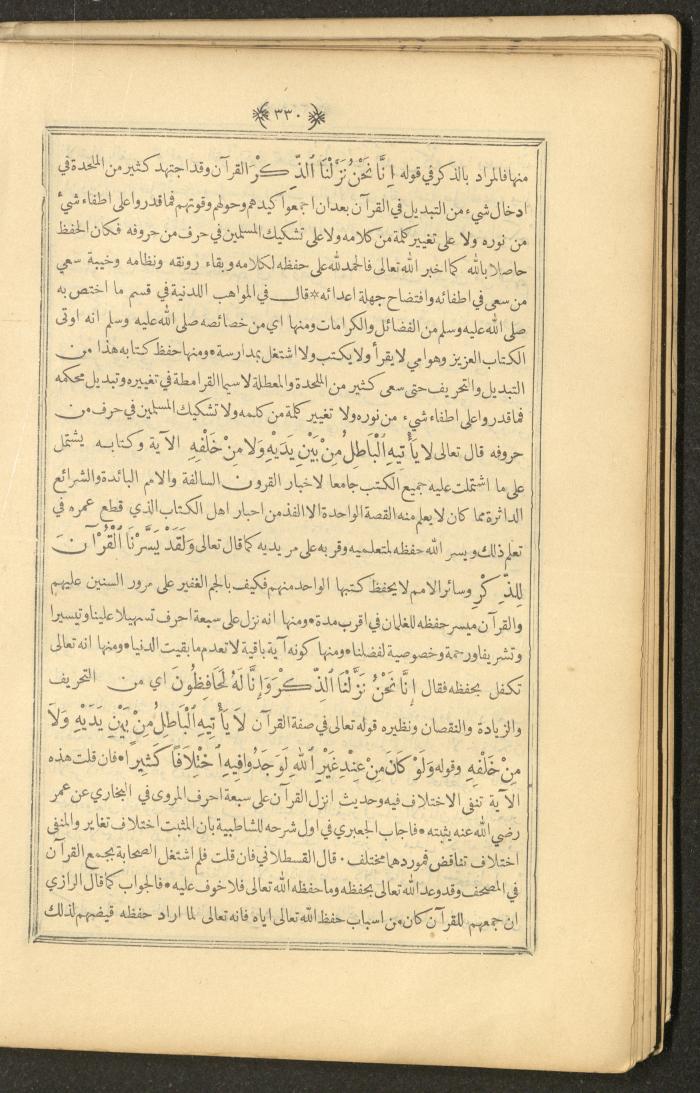 ﴿ ٣٣٠ ﴾
منها فالمراد بالذكر في قوله اِنَّا نَحْنُ نَزَّلْنَا الذِّكْرَ القرآن وقد اجتهد كثير من الملحدة في
ادخال شيء من التبديل في القرآن بعد ان اجمعوا كيدهم وحولهم وقوتهم فما قدروا على اطفاء شيء
من نوره ولا على تغيير كلمة من كلامه ولا على تشكيك المسلمين في حرف من حروفه فكان الحفظ
حاصلا بالله كما اخبر الله تعالى فالحمد لله على حفظه لكلامه وبقاء رونقه ونظامه وخيبة سعي
من سعى في اطفائه وافتضاح جهلة اعدائه * قال في المواهب اللدنية في قسم ما اختص به
صلى الله عليه وسلم من الفضائل والكرامات ومنها اي من خصائصه صلى الله عليه وسلم انه اوتى
الكتاب العزيز وهو امي لا يقرأ ولا يكتب ولا اشتغل بمدارسة • ومنها حفظ كتابه هذا من
التبديل والتحريف حتى سعى كثير من الملحدة والمعطلة لاسيما القرامطة في تغييره وتبديل محكمه
فما قدروا على اطفاء شيء من نوره ولا تغيير كلمة من كلمه ولا تشكيك المسلمين في حرف من
حروفه قال تعالى لَا يَأْتِيهِ الْبَاطِلُ مِنْ بَيْنِ يَدَيْهِ وَلَا مِنْ خَلْفِهِ الآية وكتابه يشتمل
على ما اشتملت عليه جميع الكتب جامعا لاخبار القرون السالفة والامم البائدة والشرائع
الداثرة مما كان لا يعلم منه القصة الواحدة الا الفذ من احبار اهل الكتاب الذي قطع عمره في
تعلم ذلك ويسر الله حفظه لمتعلميه وقربه على مريديه كما قال تعالى وَلَقَدْ يَسَّرْنَا الْقُرْآنَ
لِلذِّكْرِ وسائر الامم لا يحفظ كتبها الواحد منهم فكيف بالجم الغفير على مرور السنين عليهم
والقرآن ميسر حفظه للغلمان في اقرب مدة • ومنها انه نزل على سبعة احرف تسهيلا علينا وتيسيرا
وتشريفا ورحمة وخصوصية لفضلنا • ومنها كونه آية باقية لا تعدم ما بقيت الدنيا • ومنها انه تعالى
تكفل بحفظه فقال اِنَّا نَحْنُ نَزَّلْنَا الذِّكْرَ وَاِنَّا لَهُ لَحَافِظُونَ اي من التحريف
والزيادة والنقصان ونظيره قوله تعالى في صفة القرآن لَا يَأْتِيهِ الْبَاطِلُ مِنْ بَيْنِ يَدَيْهِ وَلَا
مِنْ خَلْفِهِ وقوله وَلَوْ كَانَ مِنْ عِنْدِ غَيْرِ اللهِ لَوَجَدُوا فِيهِ اخْتِلَافًا كَثِيرًا • فان قلت هذه
الآية تنفى الاختلاف فيه وحديث انزل القرآن على سبعة احرف المروى في البخاري عن عمر
رضي الله عنه يثبته • فاجاب الجعبري في اول شرحه للشاطبية بان المثبت اختلاف تغاير والمنفى
اختلاف تناقض فموردها مختلف • قال القسطلاني فان قلت فلم اشتغل الصحابة بجمع القرآن
في المصحف وقد وعد الله تعالى بحفظه وما حفظه الله تعالى فلا خوف عليه • فالجواب كما قال الرازي
ان جمعهم للقرآن كان من اسباب حفظ الله تعالى اياه فانه تعالى لما اراد حفظه قيضهم لذلك